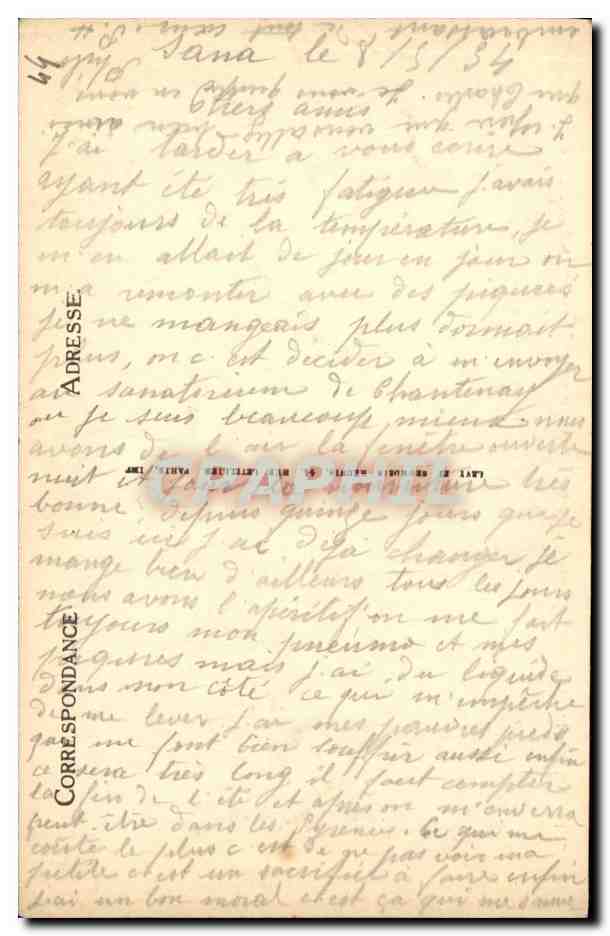 44
Sana le 8/5/34
Chers amis
J'ai tarder a vous ecrire
ayant été très fatiguée j'avais
toujours de la température, je
m'en allait de jour en jour on
m'a remonter avec des piqures
je ne mangeais plus dormait
plus, on c'est décider à m'envoyer
au sanatorium de Chantenay
ou je suis beaucoup mieux nous
avons de l'air la fenêtre ouverte
nuit et jour la nourriture très
bonne, depuis quinze jours que je
suis ici j'ai déjà changer je
mange bien d'ailleurs tous les jours
nous avons l'apéritif on me fait
toujours mon pneumo et mes
piqures mais j'ai du liquide
dans mon côté ce qui m'empêche
de me lever j'ai mes pauvres pieds
qui me font bien souffrir aussi enfin
ce sera très long il faut compter
la fin de l'été et après on m'enverra
peut-être dans les Pyrénées. Ce qui me
coute le plus c'est de ne pas voir ma
petite c'est un sacrifice à faire enfin
j'ai un bon moral c'est ça qui me sauve
J'espère que vous allez bien ainsi
que Charles. Je vous quitte en vous
embrassant de tout cœur.
ADRESSE.
CORRESPONDANCE
CPARHIL